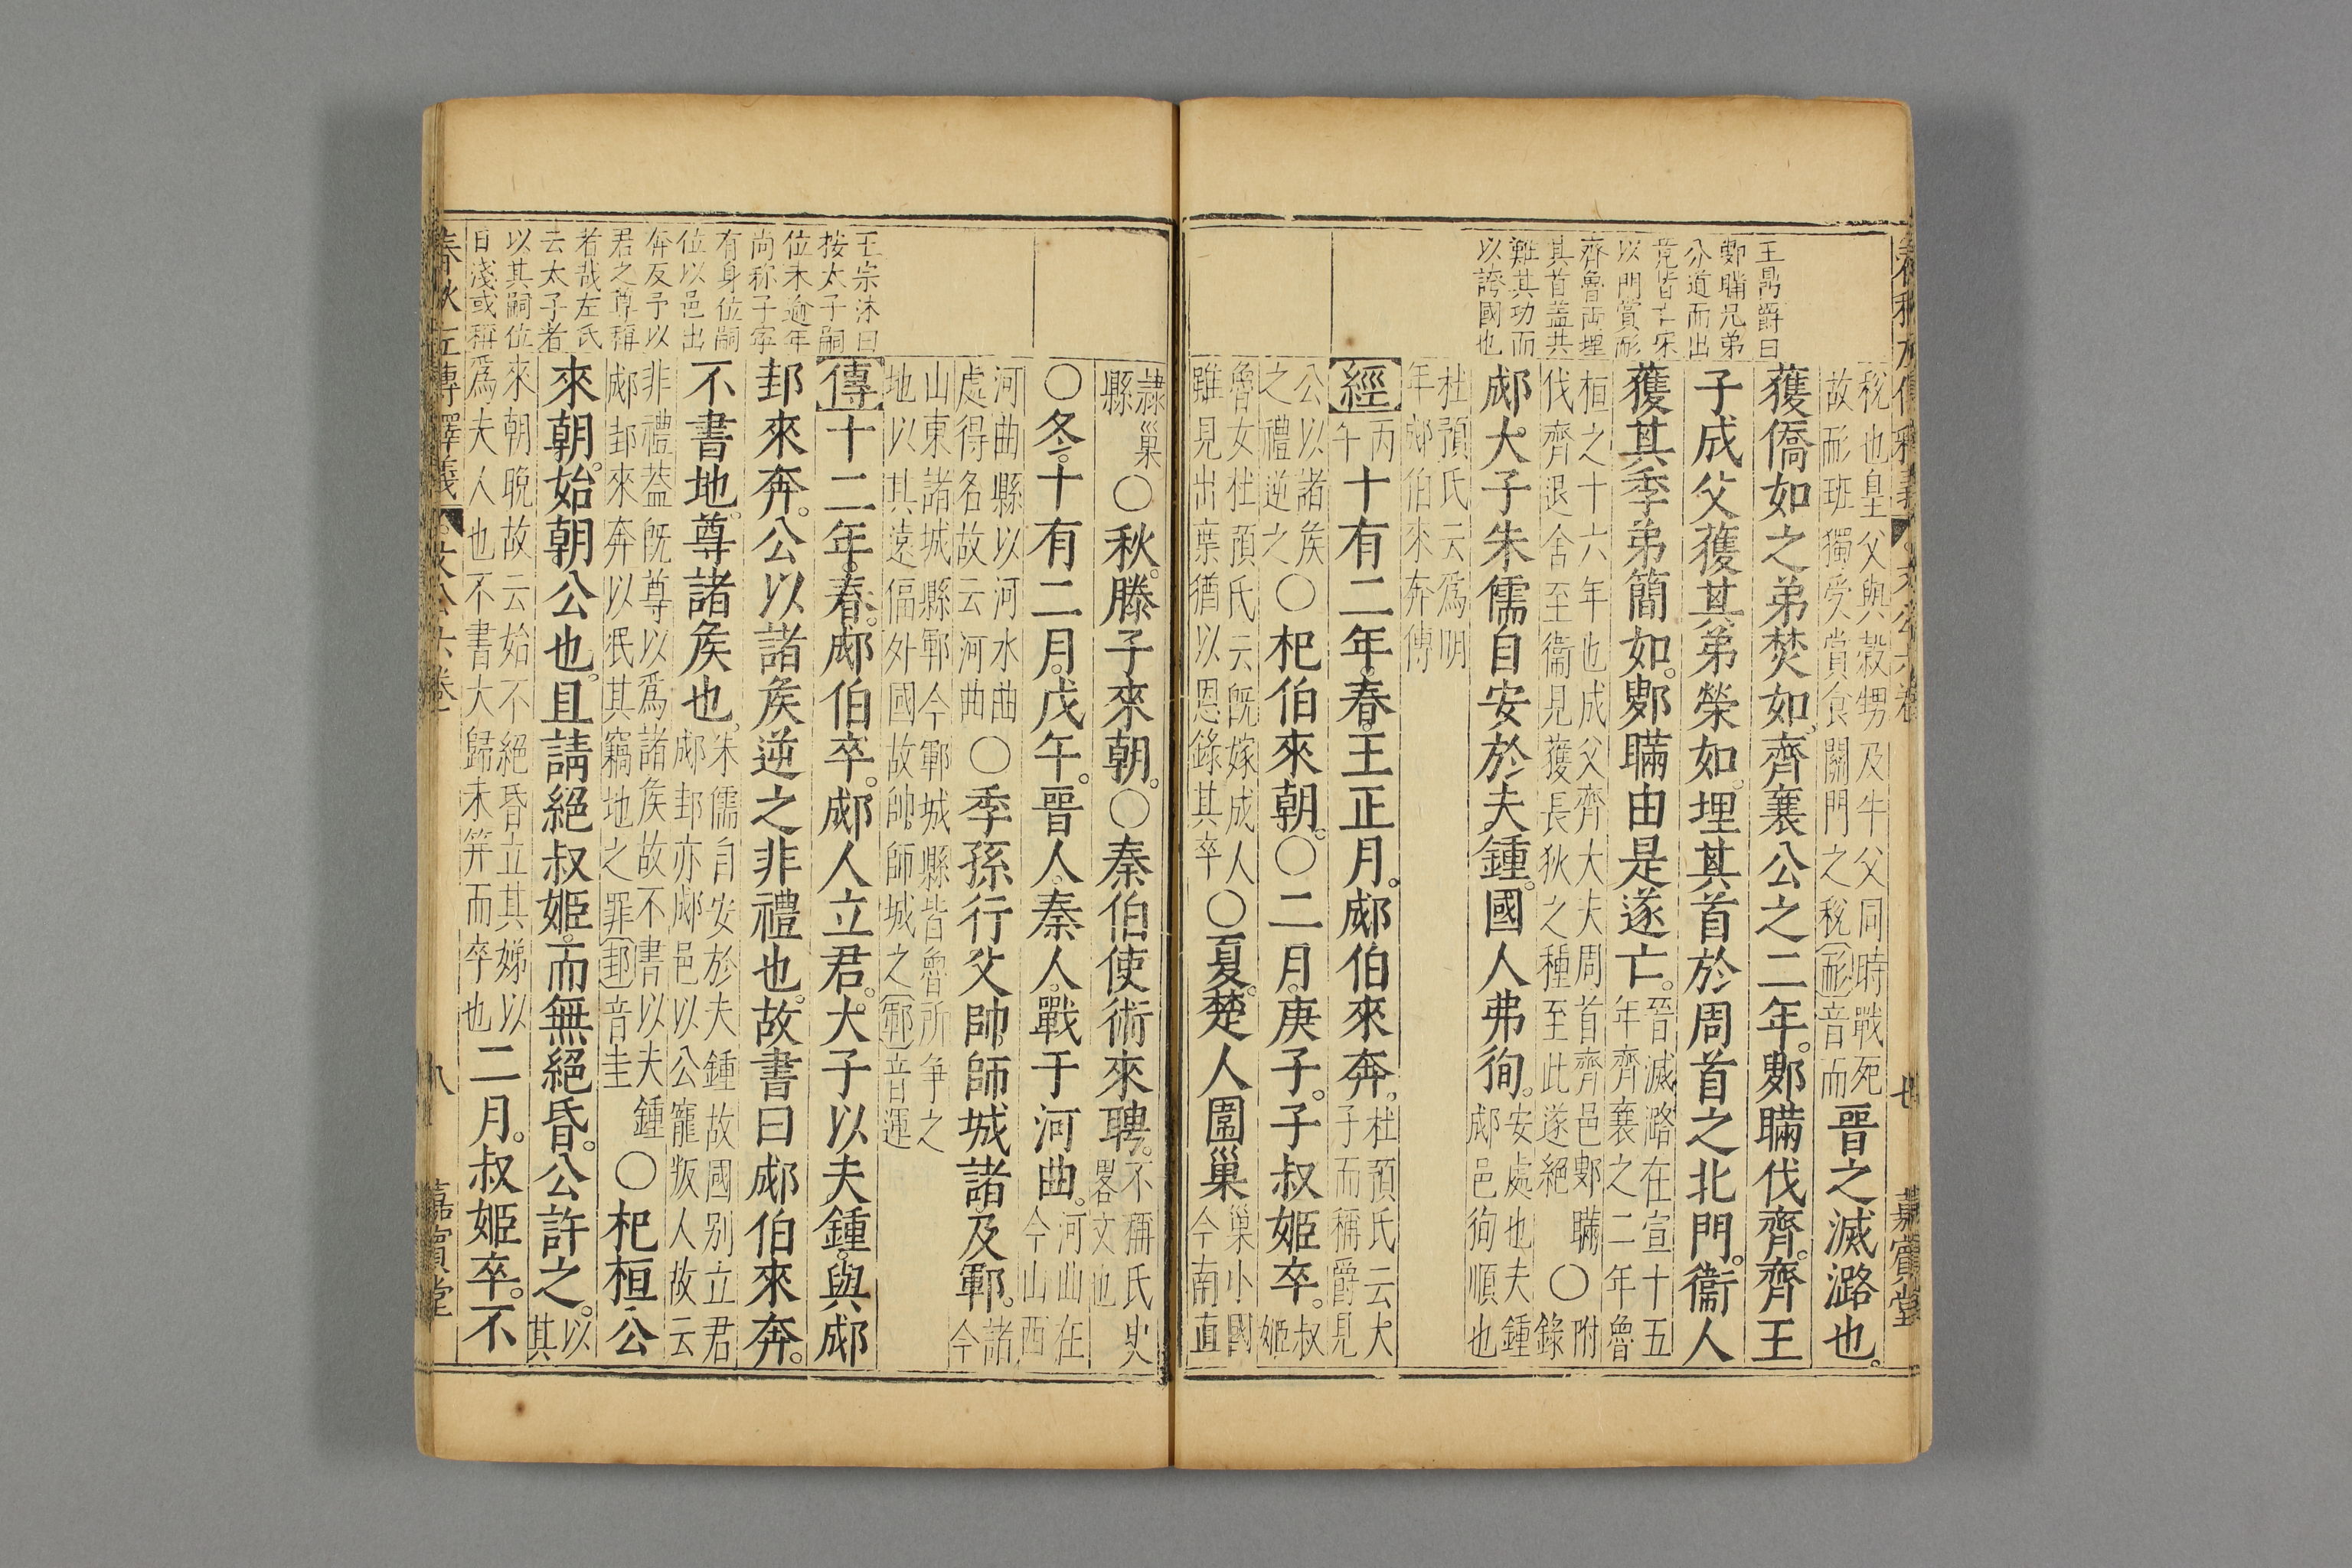 王鼎爵曰
鄋瞞兄弟
分道而出
竟皆亡宋
以門賞耏
齊魯兩埋
其首蓋共
難其功而
以誇國也
稅也皇父與榖甥及牛父同時戰死
故耏班獨受賞食關門之稅耏音而
晉之滅潞也
獲僑如之弟焚如齊襄公之二年鄋瞞伐齊齊王
子成父獲其弟榮如埋其首於周首之北門衞人
獲其季弟簡如鄋瞞由是遂亡
晉滅潞在宣十五
年齊襄之二年魯
桓之十六年也成父齊大夫周首齊邑鄋瞞
伐齊退舍至衞見獲長狄之種至此遂絕
○
附
錄
郕大子朱儒自安於夫鍾國人弗徇
安處也夫鍾
郕邑徇順也
杜預氏云爲明
年郕伯來奔傳
經
丙
午
十有二年春王正月郕伯來奔
杜預氏云大
子而稱爵見
公以諸矦
之禮逆之
○杞伯來朝○二月庚子子叔姬卒
叔
姬
魯女杜預氏云既嫁成人
雖見出棄猶以恩錄其卒
○夏楚人圍巢
巢小國
今南直
隷巢
縣
○秋滕子來朝○秦伯使術來聘
不稱氏史
畧文也
○冬十有二月戊午晉人秦人戰于河曲
河曲在
今山西
河曲縣以河水曲
處得名故云河曲
○季孫行父帥師城諸及鄆
諸
今
山東諸城縣鄆今鄆城縣皆魯所爭之
地以其遠偪外國故帥師城之鄆音運
王宗沐曰
按太子嗣
位未逾年
尚称子寧
有身位嗣
位以邑出
奔反予以
君之尊稱
若哉左氏
云太子者
以其嗣位
日淺或稱
傳十二年春郕伯卒郕人立君大子以夫鍾與郕
邽來奔公以諸矦逆之非禮也故書曰郕伯來奔
不書地尊諸矦也
朱儒自安於夫鍾故國別立君
郕邽亦郕邑以公寵叛人故云
非禮葢既尊以爲諸矦故不書以夫鍾
郕邽來奔以泯其竊地之罪邽音圭
○杞桓公
來朝始朝公也且請絕叔姬而無絕昏公許之
以
其
來朝晚故云始不絕昏立其娣以
爲夫人也不書大歸未筓而卒也
二月叔姬卒不
春秋左傳釋義
文公六卷
八
嘉賓堂